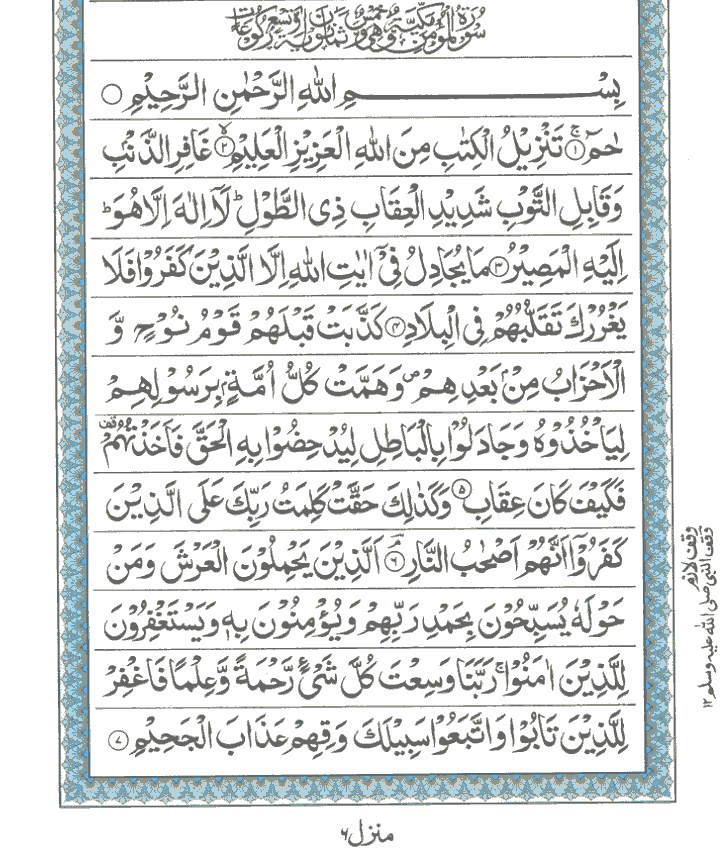 سُوْرَةُ الْمُؤْمِنِ مَكِّيَّةٌ وَّهِيَ خَمْسٌ وَّثَمَانُوْنَ اٰيَةً وَّتِسْعُ رُكُوْعَاتٍ
بِسْمِ اللّٰهِ الرَّحْمٰنِ الرَّحِيْمِ ۝
حٰمٓ ۚ﴿۱﴾ تَنْزِيْلُ الْكِتٰبِ مِنَ اللّٰهِ الْعَزِيْزِ الْعَلِيْمِ ۙ﴿۲﴾ غَافِرِ الذَّنْۢبِ
وَقَابِلِ التَّوْبِ شَدِيْدِ الْعِقَابِ ذِى الطَّوْلِ ؕ لَاۤ اِلٰهَ اِلَّا هُوَ ؕ
اِلَيْهِ الْمَصِيْرُ ﴿۳﴾ مَا يُجَادِلُ فِىْۤ اٰيٰتِ اللّٰهِ اِلَّا الَّذِيْنَ كَفَرُوْا فَلَا
يَغْرُرْكَ تَقَلُّبُهُمْ فِى الْبِلَادِ ﴿۴﴾ كَذَّبَتْ قَبْلَهُمْ قَوْمُ نُوْحٍ وَّ
الْاَحْزَابُ مِنْۢ بَعْدِهِمْ ۪ وَهَمَّتْ كُلُّ اُمَّةٍۭ بِرَسُوْلِهِمْ
لِيَاْخُذُوْهُ وَجَادَلُوْا بِالْبَاطِلِ لِيُدْحِضُوْا بِهِ الْحَقَّ فَاَخَذْتُهُمْ قف
فَكَيْفَ كَانَ عِقَابِ ﴿۵﴾ وَكَذٰلِكَ حَقَّتْ كَلِمَتُ رَبِّكَ عَلَى الَّذِيْنَ
كَفَرُوْۤا اَنَّهُمْ اَصْحٰبُ النَّارِ ۘ﴿۶﴾ اَلَّذِيْنَ يَحْمِلُوْنَ الْعَرْشَ وَمَنْ
حَوْلَهٗ يُسَبِّحُوْنَ بِحَمْدِ رَبِّهِمْ وَيُؤْمِنُوْنَ بِهٖ وَيَسْتَغْفِرُوْنَ
لِلَّذِيْنَ اٰمَنُوْا ۚ رَبَّنَا وَسِعْتَ كُلَّ شَىْءٍ رَّحْمَةً وَّعِلْمًا فَاغْفِرْ
لِلَّذِيْنَ تَابُوْا وَاتَّبَعُوْا سَبِيْلَكَ وَقِهِمْ عَذَابَ الْجَحِيْمِ ﴿۷﴾
وقف لازم
وقف النبى صلى الله عليه وسلم ۱۲
منزل ۶